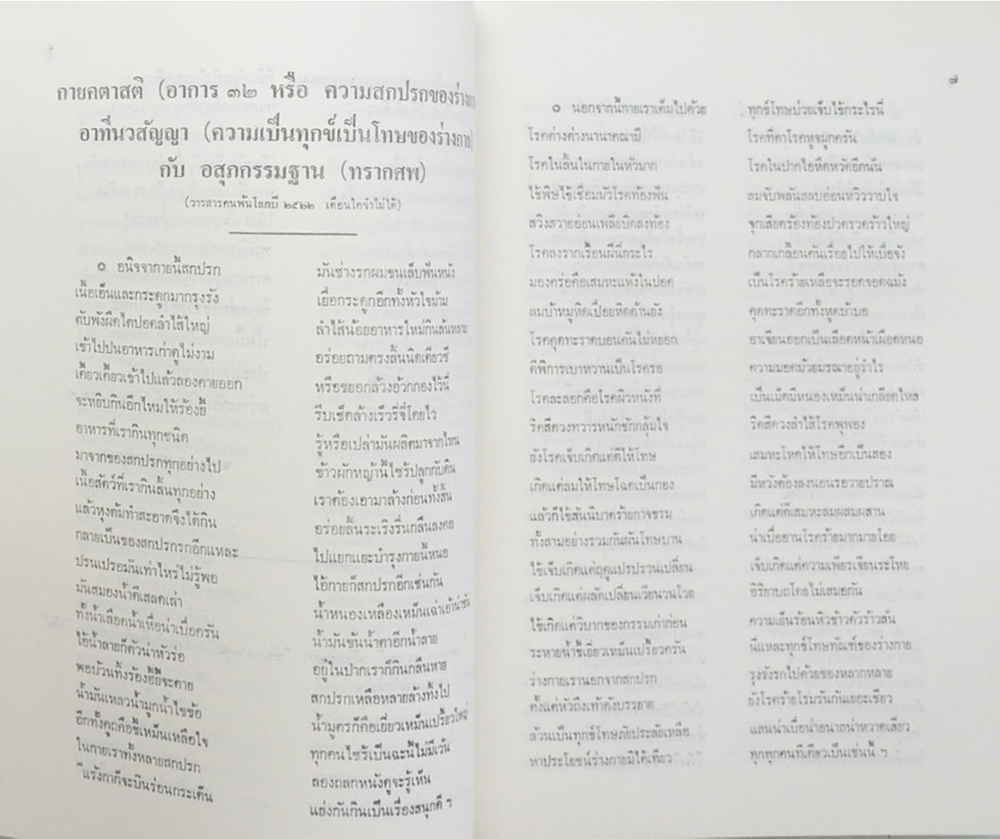 กายคตาสติ (อาการ ๓๒ หรือ ความสกปรกของร่างกาย
อาทีนวสัญญา (ความเป็นทุกข์เป็นโทษของร่างกาย)
กับ อสุภกรรมฐาน (ทรากศพ)
(วารสารคนพ้นโลกปี ๒๕๒๒ เดือนใดจำไม่ได้)
๏ อนิจจากายนี้สกปรก มันช่างรกผมขนเล็บฟันหนัง
เนื้อเอ็นและกระดูกมากรุงรัง เยื่อกระดูกอีกทั้งหัวใจม้าม
ตับพังผืดไตปอดลำไส้ใหญ่ ลำไส้น้อยอาหารใหม่กินล้นหลาม
เข้าไปปนอาหารเก่าดูไม่งาม อร่อยถามตรงลิ้นนิดเดียวซี
เคี้ยวเคี้ยวเข้าไปแล้วลองคายออก หรือขยอกล้วงอ้วกกองไว้นี่
จะหยิบกินอีกไหมให้ร้องยี้ รีบเช็ดล้างเร็วรี่ซี่โดยไว
อาหารที่เรากินทุกชนิด รู้หรือเปล่ามันผลิตมาจากไหน
มาจากของสกปรกทุกอย่างไป ข้าวผักหญ้านี้ไซร้ปลูกกับดิน
เนื้อสัตว์ที่เรากินสิ้นทุกอย่าง เราต้องเอามาล้างก่อนทั้งสิ้น
แล้วหุงต้มทำสะอาดจึงได้กิน อร่อยลิ้นระเริงรื่นกลืนลงคอ
กลายเป็นของสกปรกอีกแหละ ไปแยกแยะบำรุงกายนี้หนอ
ปรนเปรอมันเท่าไหร่ไม่รู้พอ ไอ้กายก็สกปรกอีกเช่นกัน
มันสมองน้ำดีเสลดเล่า น้ำหนองเหลืองเหม็นเฉ่าเอ้าน่าขัน
ทั้งน้ำเลือดน้ำเหงื่อน่าเบื่อครัน น้ำมันข้นน้ำตาอีกน้ำลาย
ไอ้น้ำลายก็ตัวน่าหัวร่อ อยู่ในปากเราก็กินกลืนหาย
พอบ้วนทิ้งร้องยี้ยี้จะตาย สกปรกเหลือหลายล้างทิ้งไป
น้ำมันเหลวน้ำมูกน้ำไขข้อ น้ำมูตรก็คือเยี่ยวเหม็นเปรี้ยวใหญ่
อีกทั้งคูถคือขี้เหม็นเหลือใจ ทุกคนไซร้เป็นฉะนี้ไม่มีเว้น
ในกายเราทั้งหลายสกปรก ลองถลกหนังดูจะรู้เห็น
แร้งกาก็จะบินร่อนกระเด็น แย่งกันกินเป็นเรื่องสนุกดี ฯ
๗
๏ นอกจากนี้กายเราเต็มไปด้วย ทุกข์โทษป่วยเจ็บไข้กระไรนี่
โรคต่างต่างนานาคณามี โรคที่ตาโรคหูจมูกครัน
โรคในลิ้นในกายในหัวมาก โรคในปากไอหืดหวัดอีกนั่น
ไข้พิษไข้เซื่อมมัวโรคท้องพัน ลมจับพลันสลบอ่อนหวิววาบใจ
สวิงสวายอ่อนเพลียบิดลงท้อง จุกเสียดร้องท้องปวดรวดร้าวใหญ่
โรคลงรากเรื้อนฝีนี่กระไร กลากเกลื้อนคันเรื่อยไปให้เบื่อจัง
มองคร่อคือเสมหะแห้งในปอด เป็นโรคร้ายเหลือจะรอดจอดฉมัง
ลมบ้าหมูหิดเปื่อยหิดด้านยัง คุดทะราดอีกทั้งหูดบ้าบอ
โรคคุดทะราดบอนคันไม่หยอก อาเจียนออกเป็นเลือดหน้าเผือดหนอ
ดีพิการเบาหวานเป็นโรครอ ความมอดม้วยมรณาอยู่ร่ำไร
โรคละลอกคือโรคผิวหนังที่ เป็นเม็ดมีหนองเหม็นน่าเกลียดไหล
ริดสีดวงทวารหนักชักกลุ้มใจ ริดสีดวงลำไส้โรคพุพอง
ยังโรคเจ็บเกิดแต่ดีให้โทษ เสมหะโหดให้โทษอีกเป็นสอง
เกิดแต่ลมให้โทษโฉดเป็นกอง มีหวังต้องลงนอนรอวายปราณ
แล้วก็ไข้สันนิบาตร้ายกาจธรรม เกิดแต่ดีเสมหะลมผสมผสาน
ทั้งสามอย่างรวมกันผันโทษบาน น่าเบื่ออ่านโรคร้ายมากมายโอย
ไข้เจ็บเกิดแต่ฤดูแปรปรวนเปลี่ยน เจ็บเกิดแต่ความเพียรเจียนระโหย
เจ็บเกิดแต่ผลัดเปลี่ยนเวียนวนโวย อิริยาบถโดยไม่เสมอกัน
ไข้เกิดแต่วิบากของกรรมเก่าก่อน ความเย็นร้อนหิวข้าวตัวร้าวสั่น
ระหายน้ำขี้เยี่ยวเหม็นเปรี้ยวครัน นี่แหละทุกข์โทษทัณฑ์ของร่างกาย
ร่างกายเรานอกจากสกปรก รุงรังรกไปด้วยของหลากหลาย
ตั้งแต่หัวถึงเท้าดังบรรยาย ยังโรคร้ายโรมรันกันเยอะเชียว
ล้วนเป็นทุกข์โทษภัยประลัยเหลือ แสนน่าเบื่อน่าอนาถน่าหวาดเสียว
หาประโยชน์ร่างกายมิได้เทียว ทุกทุกคนทีเดียวเป็นเช่นนี้ ฯ